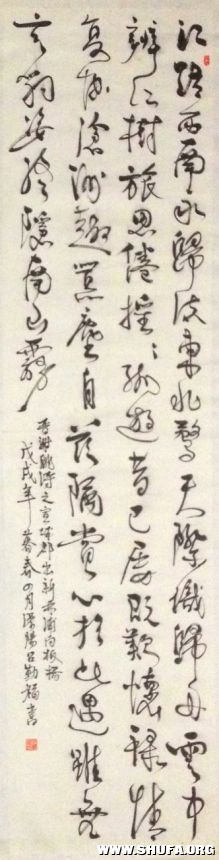 江路西南永歸流東北騖天際識歸舟雲中
辨江樹旅思倦搖々孤遊昔已屢既歡懷祿情
復協滄洲趣囂塵自茲隔賞心於此遇雖無
玄豹姿終隱南山霧
謝朓詩之宣城郡出新林浦向板橋
戊戌年暮春四月溧陽呂勤福書
WWW.SHUFA.ORG